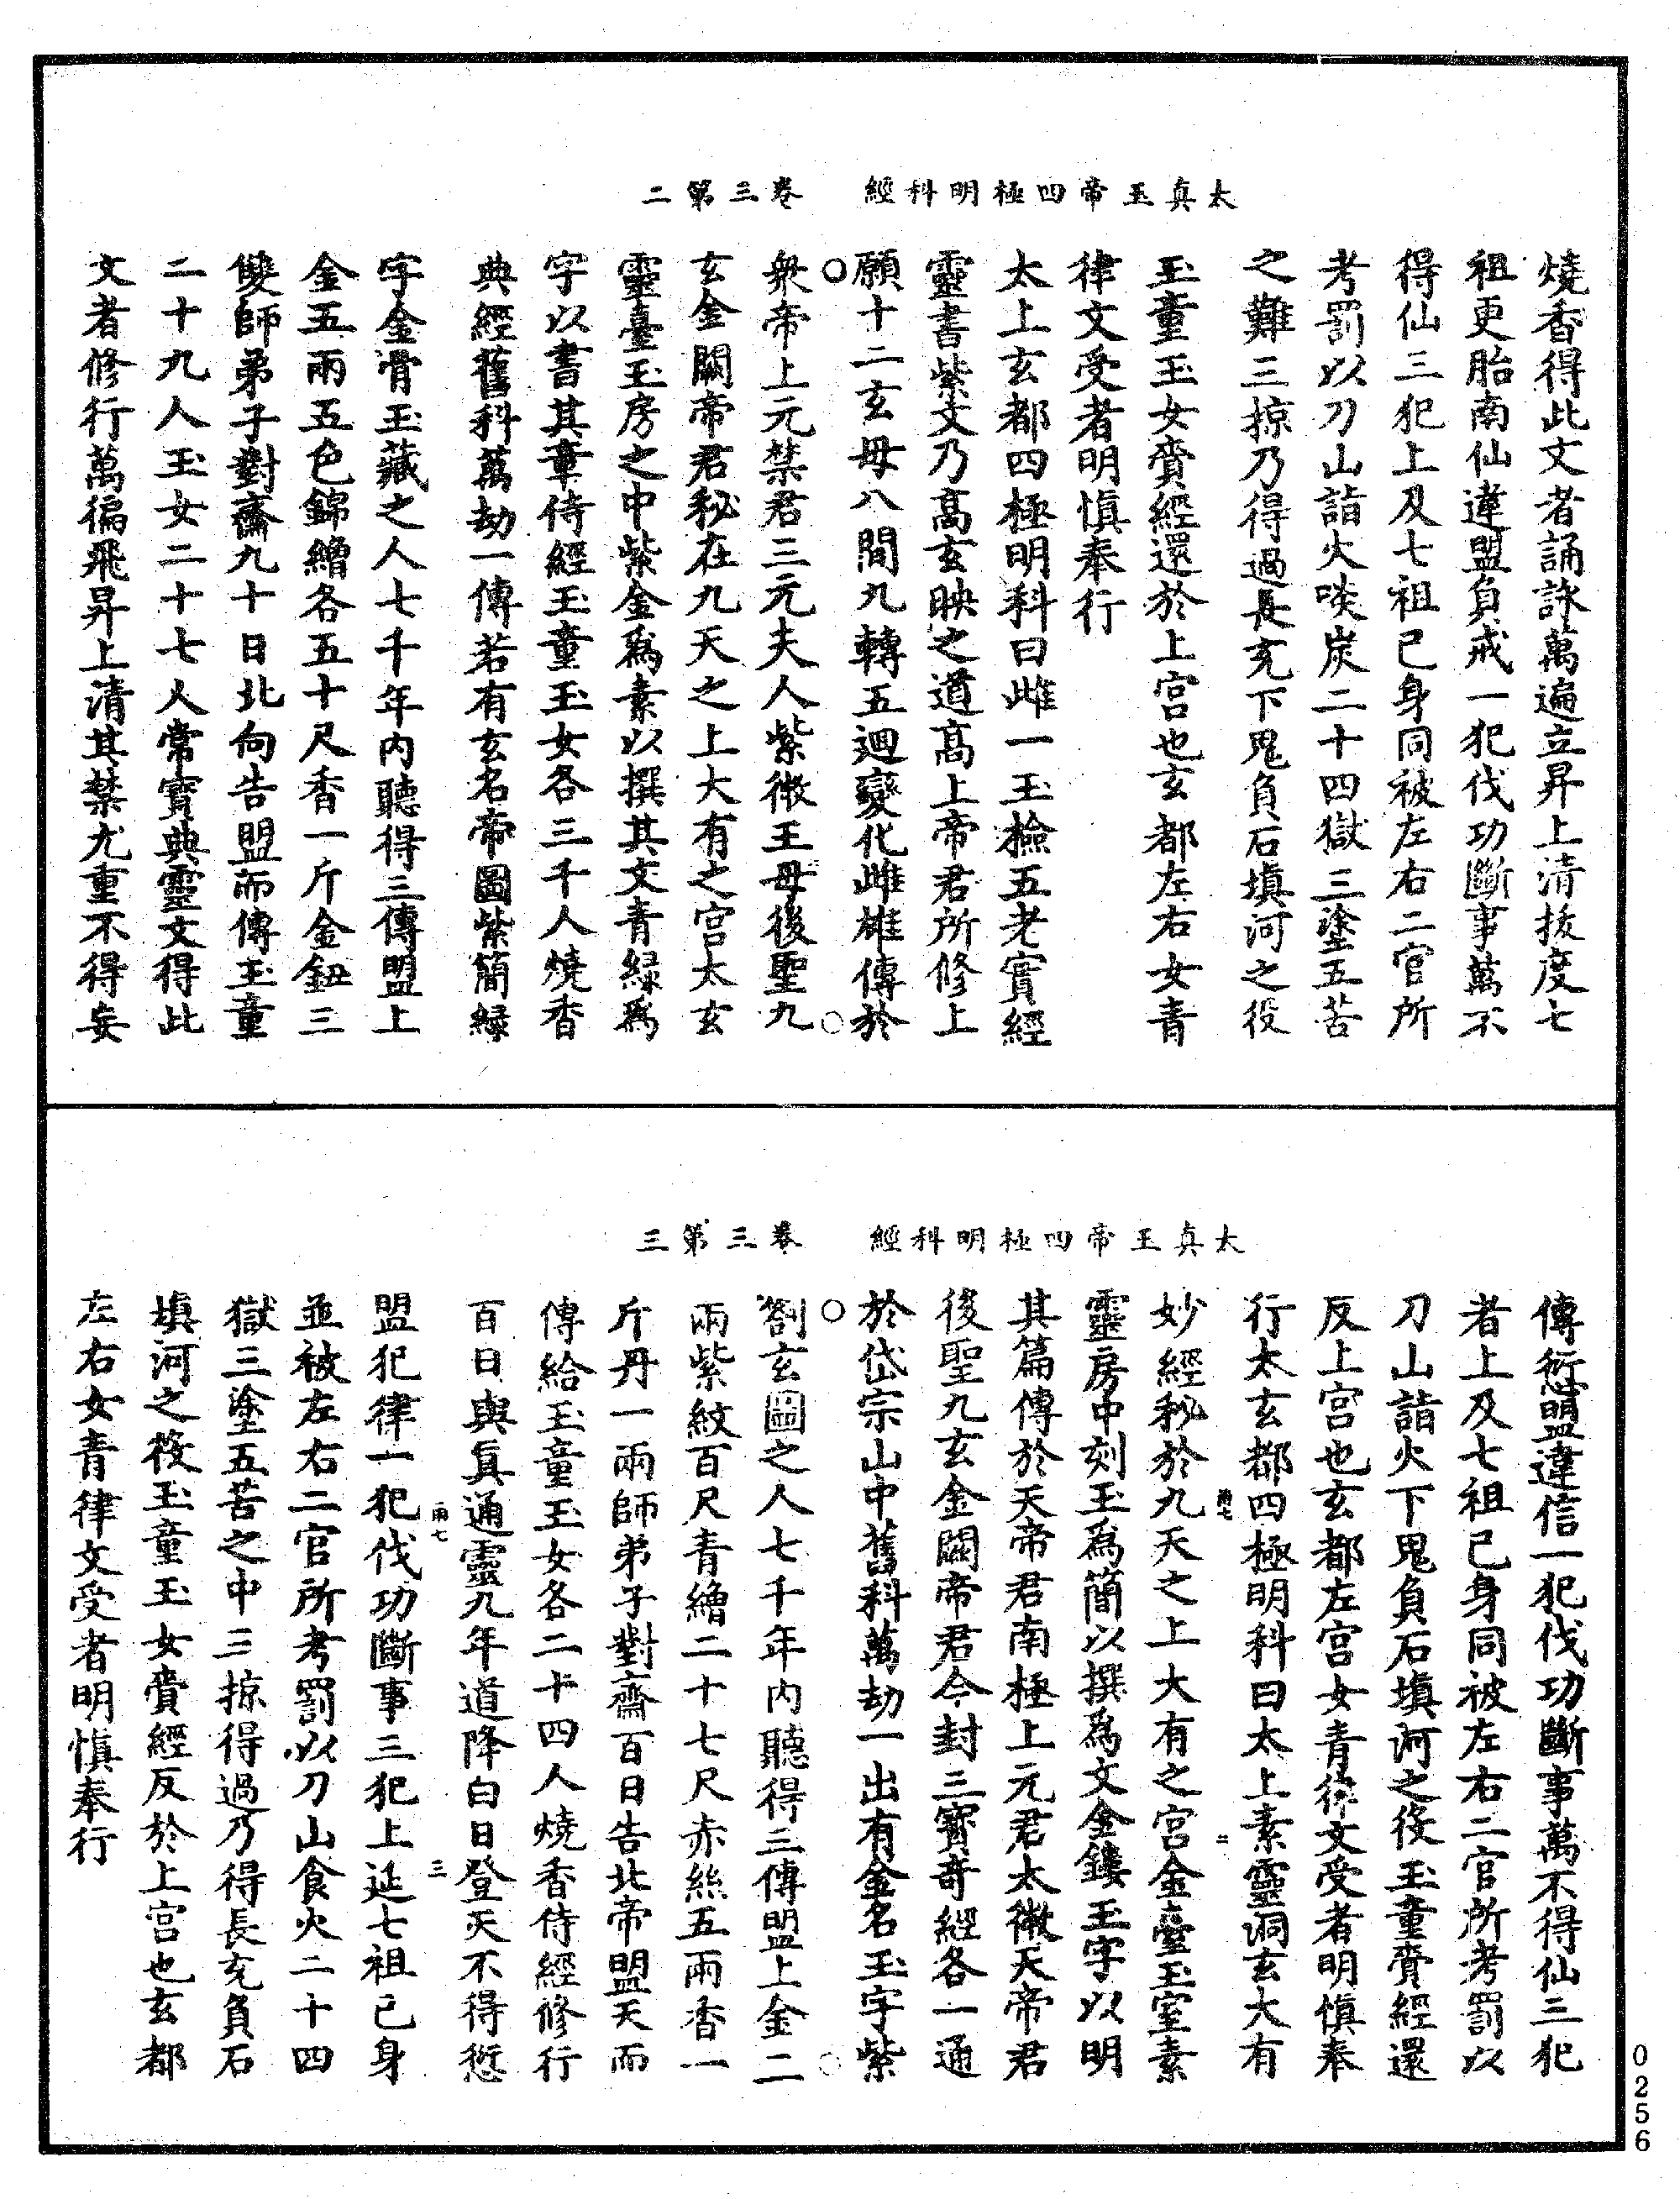 太真玉帝四極明科經　卷三第二
燒香得此文者誦詠萬遍立昇上清拔度七
祖更胎南仙違盟負戒一犯伐功斷事萬不
得仙三犯上及七祖己身同被左右二官所
考罰以刀山詣火啖炭二十四獄三塗五苦
之難三掠乃得過長充下鬼負石填河之役
玉童玉女賫經還於上宮也玄都左右女青
律文受者明慎奉行
太上玄都四極明科曰雌一玉檢五老寶經
靈書紫文乃高玄映之道高上帝君所修上
願十二玄母八間九轉五迴變化雌雄傳於
衆帝上元禁君三元夫人紫微王母後聖九
玄金闕帝君秘在九天之上大有之宮太玄
靈臺玉房之中紫金為素以撰其文青綠為
字以書其章侍經玉童玉女各三千人燒香
典經舊科萬劫一傳若有玄名帝圖紫簡綠
字金骨玉藏之人七千年內聽得三傳盟上
金五兩五色錦繒各五十尺香一斤金鈕三
雙師弟子對齋九十日北向告盟而傳玉童
二十九人玉女二十七人常寶典靈文得此
文者修行萬徧飛昇上清其禁尤重不得妄
太真玉帝四極明科經　卷三第三
傳愆盟違信一犯伐功斷事萬不得仙三犯
者上及七祖己身同被左右二官所考罰以
刀山詣火下鬼負石填河之役玉童賫經還
反上宮也玄都左宮女青律文受者明慎奉
行太玄都四極明科曰太上素靈洞玄大有
妙經秘於九天之上大有之宮金臺玉室素
靈房中刻玉為簡以撰為文金鏤玉字以明
其篇傳於天帝君南極上元君太微天帝君
後聖九玄金闕帝君今封三寶奇經各一通
於岱宗山中舊科萬劫一出有金名玉字紫
劄玄圖之人七千年內聽得三傳盟上金二
兩紫紋百尺青繒二十七尺赤絲五兩香一
斤丹一兩師弟子對齋百日告北帝盟天而
傳給玉童玉女各二十四人燒香侍經修行
百日與真通靈九年道降白日登天不得愆
盟犯律一犯伐功斷事三犯上延七祖己身
並被左右二官所考罰以刀山食火二十四
獄三塗五苦之中三掠得過乃得長充負石
填河之役玉童玉女賫經反於上宮也玄都
左右女青律文受者明慎奉行
0256